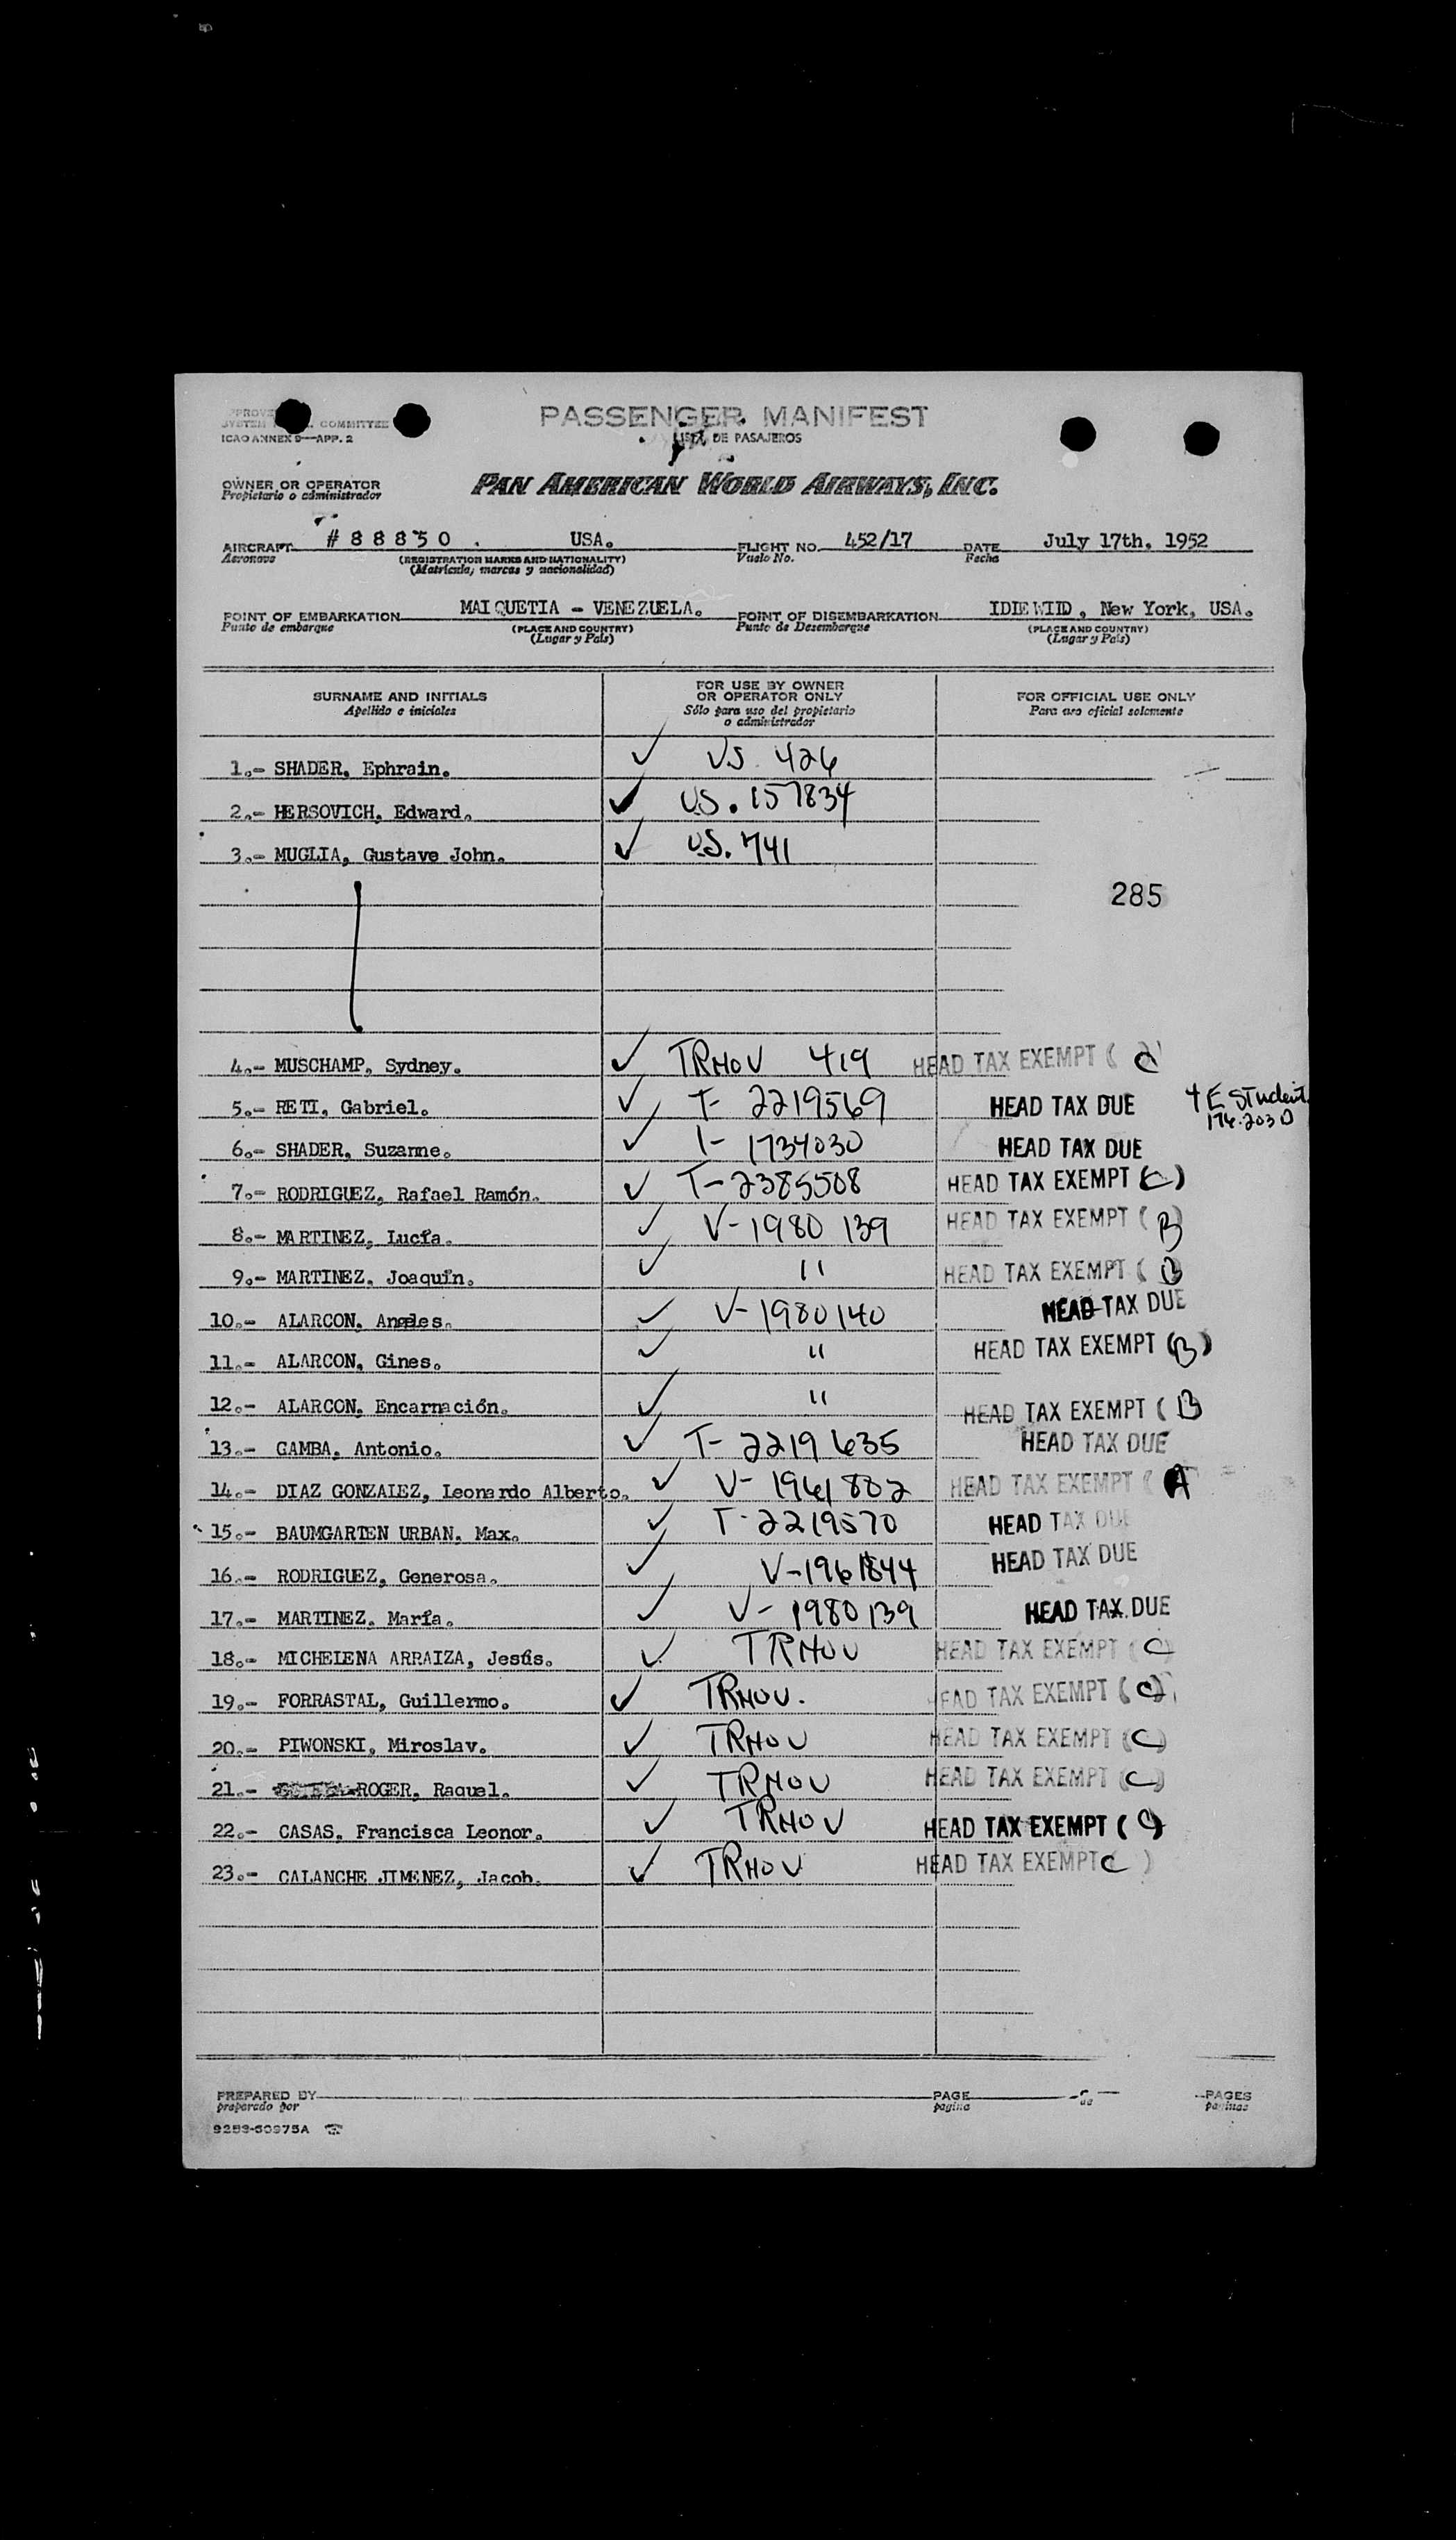 PASSENGER MANIFEST
SYSTEM COMMITTEE
ICAO ANNEX 9—APP. 2
LISTA DE PASAJEROS
OWNER OR OPERATOR
Propietario o administrador
PAN AMERICAN WORLD AIRWAYS, INC.
AIRCRAFT # 88850 . USA. FLIGHT NO. 452/17 DATE July 17th. 1952
Aeronave (REGISTRATION MARKS AND NATIONALITY) Vuelo No. Fecha
(Matrícula, marcas y nacionalidad)
POINT OF EMBARKATION MAIQUETIA - VENEZUELA. POINT OF DISEMBARKATION IDLEWILD, New York, USA.
Punto de embarque (PLACE AND COUNTRY) Punto de Desembarque (PLACE AND COUNTRY)
(Lugar y País) (Lugar y País)
SURNAME AND INITIALS FOR USE BY OWNER OR OPERATOR ONLY FOR OFFICIAL USE ONLY
Apellido e iniciales Sólo para uso del propietario o administrador Para uso oficial solamente
1.- SHADER, Ephrain. ✓ U.S. 426
2.- HERSOVICH, Edward. ✓ U.S. 157834
3.- MUGLIA, Gustave John. ✓ U.S. 741
285
4.- MUSCHAMP, Sydney. ✓ TRHOV 419 HEAD TAX EXEMPT ( C )
5.- RETI, Gabriel. ✓ T- 2219569 HEAD TAX DUE 4E Student
176.203 D
6.- SHADER, Suzanne. ✓ T- 1734030 HEAD TAX DUE
7.- RODRIGUEZ, Rafael Ramón. ✓ T-2385508 HEAD TAX EXEMPT (C)
8.- MARTINEZ, Lucía. ✓ V-1980 139 HEAD TAX EXEMPT ( B )
9.- MARTINEZ, Joaquín. ✓ " HEAD TAX EXEMPT ( B
10.- ALARCON, Angeles. ✓ V-1980140 HEAD TAX DUE
11.- ALARCON, Gines. ✓ " HEAD TAX EXEMPT (B)
12.- ALARCON, Encarnación. ✓ " HEAD TAX EXEMPT ( B
13.- GAMBA, Antonio. ✓ T- 2219635 HEAD TAX DUE
14.- DIAZ GONZALEZ, Leonardo Alberto. ✓ V- 1961802 HEAD TAX EXEMPT ( A
15.- BAUMGARTEN URBAN, Max. ✓ T- 2219570 HEAD TAX DUE
16.- RODRIGUEZ, Generosa. ✓ V-1961844 HEAD TAX DUE
17.- MARTINEZ, María. ✓ V- 1980139 HEAD TAX DUE
18.- MICHELENA ARRAIZA, Jesús. ✓ TRHOV HEAD TAX EXEMPT ( C
19.- FORRASTAL, Guillermo. ✓ TRHOV. HEAD TAX EXEMPT ( C )
20.- PIWONSKI, Miroslav. ✓ TRHOV HEAD TAX EXEMPT (C)
21.- ROGER, Raquel. ✓ TRHOV HEAD TAX EXEMPT (C)
22.- CASAS, Francisca Leonor. ✓ TRHOV HEAD TAX EXEMPT ( C)
23.- CALANCHE JIMENEZ, Jacob. ✓ TRHOV HEAD TAX EXEMPT C )
PREPARED BY PAGE PAGES
preparado por pagina de paginas
9253-60975A